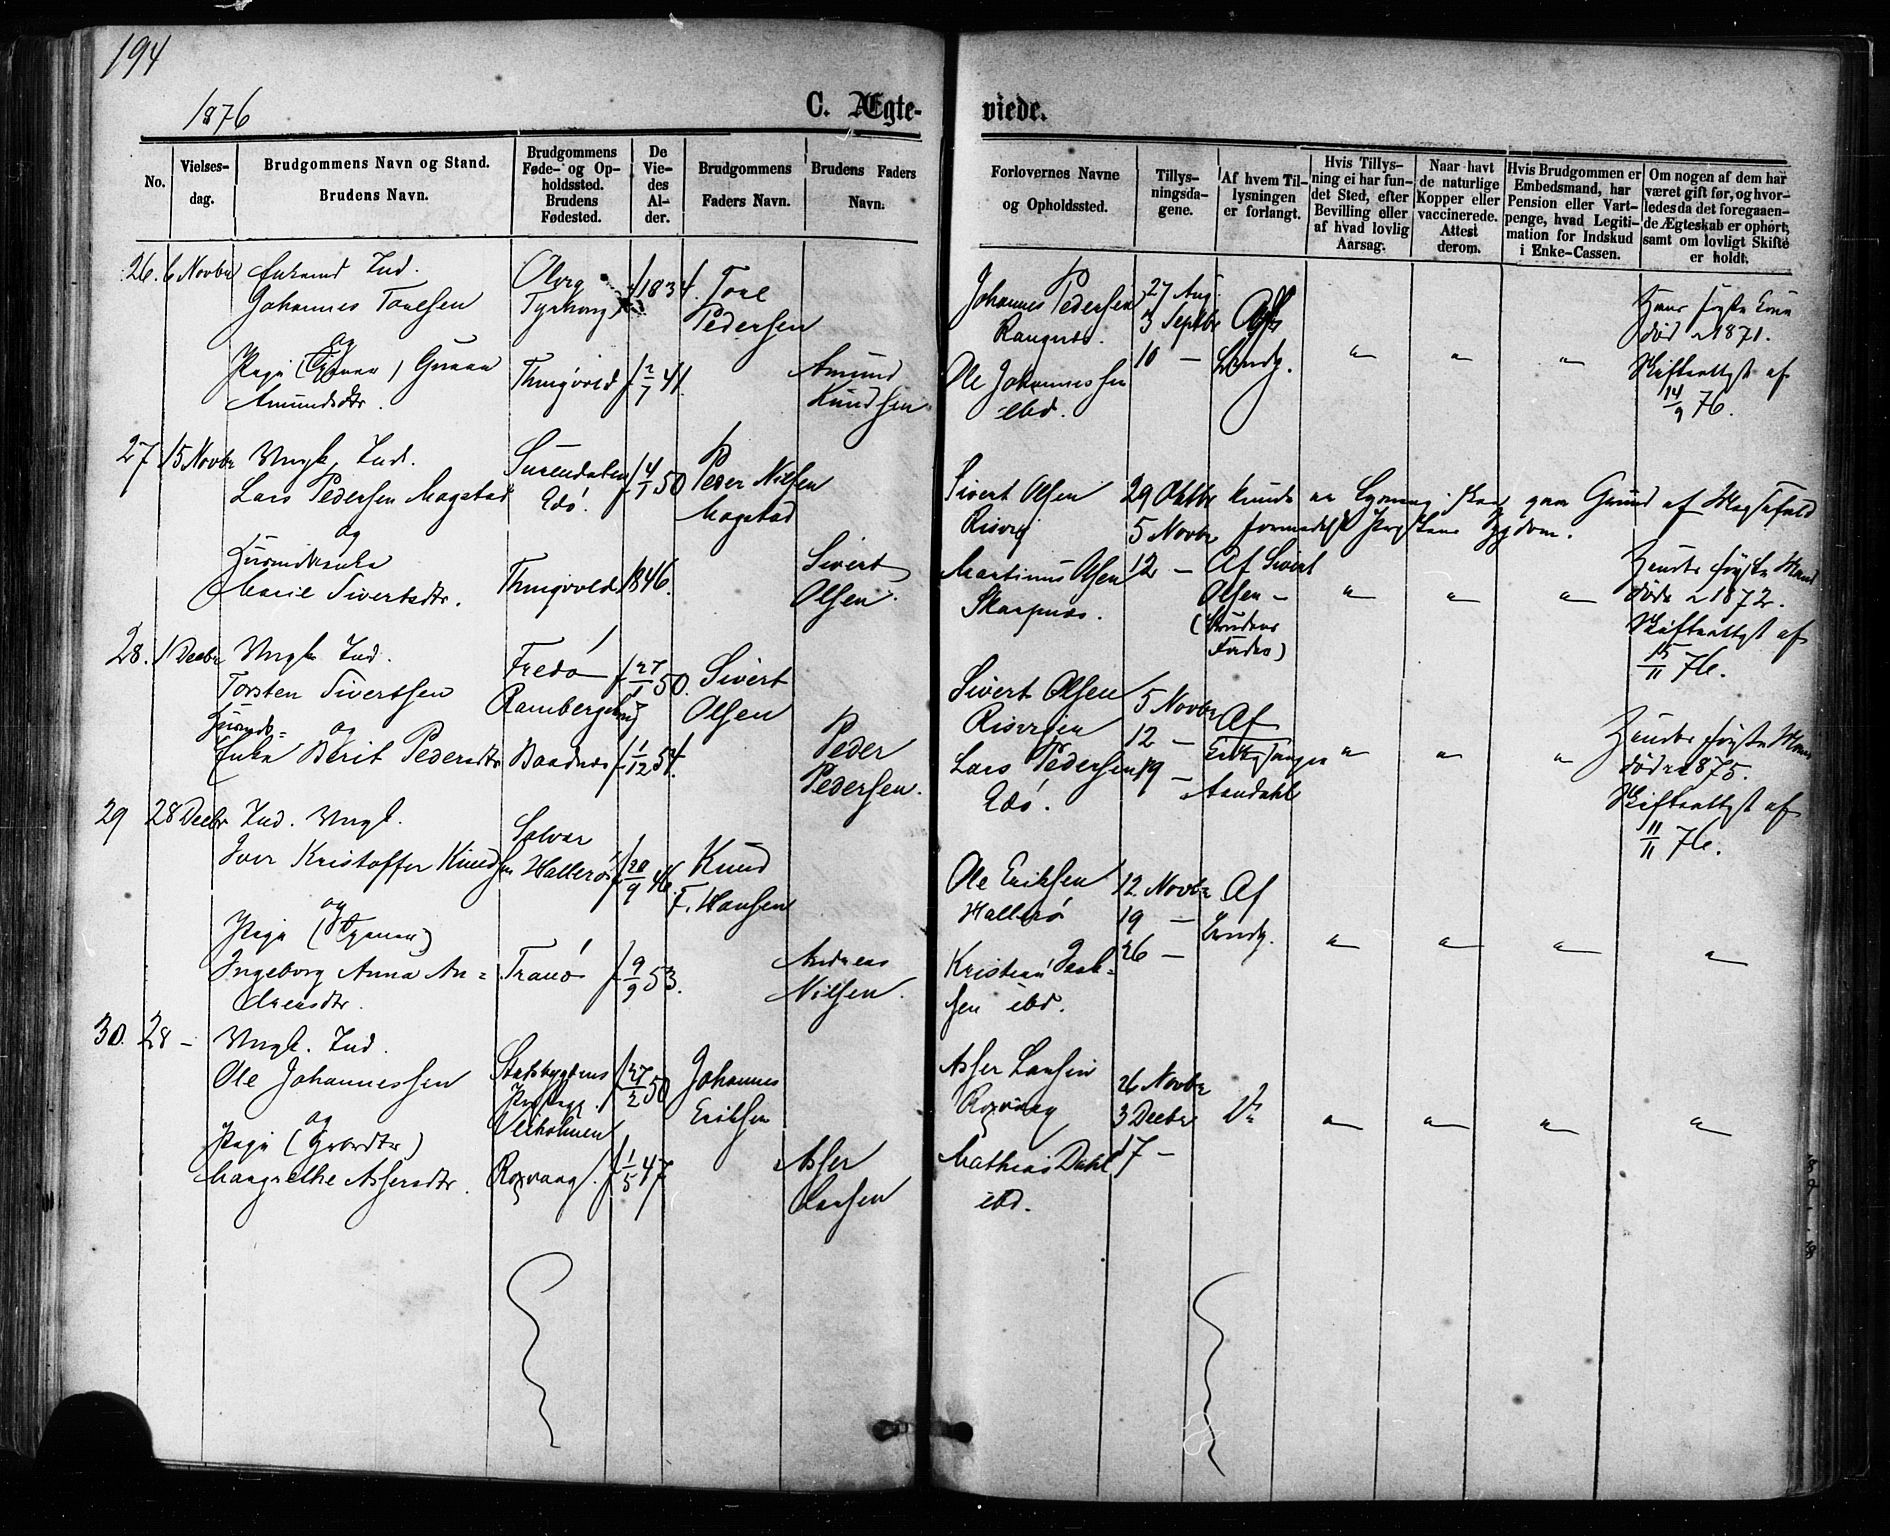 194
1876
C. Ægte-
viede.
No.
Vielses-
dag.
Brudgommens Navn og Stand.
Brudens Navn.
Brudgommens
Føde- og Op-
holdssted.
Brudens
Fødested.
De
Vie-
des
Al-
der.
Brudgommens
Faders Navn.
Brudens Faders
Navn.
Forlovernes Navne
og Opholdssted.
Tillys-
ningsda-
gene.
Af hvem Til-
lysningen
er forlangt.
Hvis Tillys-
ning ei har fun-
det Sted, efter
Bevilling eller
af hvad lovlig
Aarsag.
Naar havt
de naturlige
Kopper eller
vaccinerede.
Attest
derom.
Hvis Brudgommen er
Embedsmand, har
Pension eller Vart-
penge, hvad Legiti-
mation for Indskud
i Enke-Cassen.
Om nogen af dem har
været gift før, og hvor-
ledes da det foregaaen-
de Ægteskab er ophørt,
samt om lovligt Skifte
er holdt.
26. 6 Novbr Enkemd Ind.
Johannes Torelsen
og
Pige
Amundsdtr.
Tyrhoug
f 1834.
Pedersen
Thingvold f 2/7 41.
Amund
Knudsen
Johannes Pedersen
Ole Johannessen
ibd.
27 Aug.
3 Septbr
10 —
Af
Brudg.
" " "
Hans første Kone
død 1871.
Skifteattest af
14/9 76.
27 15 Novbr Ungk. Ind.
Lars Pedersen Magstad
og
Huusmdsenke
Marie Sivertsdtr.
Surendalen
Edø.
f 4/1 50
Peder Nilsen
Magstad
Thingvold 1846.
Sivert
Olsen.
Sivert Olsen
Martinus Olsen
29 Oktbr
5 Novbr
12 —
Grund af
formedelst Præstens Sygdom.
Af Sivert
Olsen —
(Brudens
Fader)
" " "
Hendes første Mand
døde 1872.
Skifteattest af
15/11 76.
28. 1 Decbr Ungk. Ind.
Torsten Sivertsen
Huusmds-
og
Enke Berit Pedersdtr
Fredø
f 27/1 50.
Sivert
Olsen
Baadnes f 1/12 54.
Peder
Pedersen.
Sivert Olsen
Lars Pedersen
Edø.
5 Novbr
12 —
19 —
Af
Aandahl
" " "
Hendes første Mand
død 1875.
Skifteattest af
11/11 76.
29 28 Decbr Ind. Ungk.
Iver Kristoffer Knudsen
og
Pige
Ingeborg Anna An=
dreasdtr.
Hallerø
f 20/9 46.
Knud
F. Hansen
Tranø f 9/9 53.
Andreas
Nilsen.
Ole Eriksen
Hallerø
Kristian
sen ibd.
12 Novbr
19 —
26 —
Af
Brudg.
" " " "
30. 28 — Ungk. Ind.
Ole Johannessen
og
Pige
Maagrethe Assersdtr.
Stadsbygdens
Præstegj.
Veiholmen
f 27/2 50
Johannes
Eriksen
f 1/5 47
Asser
Larsen
Asser Larsen
Mathias Dahl
ibd.
26 Novbr
3 Decbr
17 —
" " " "